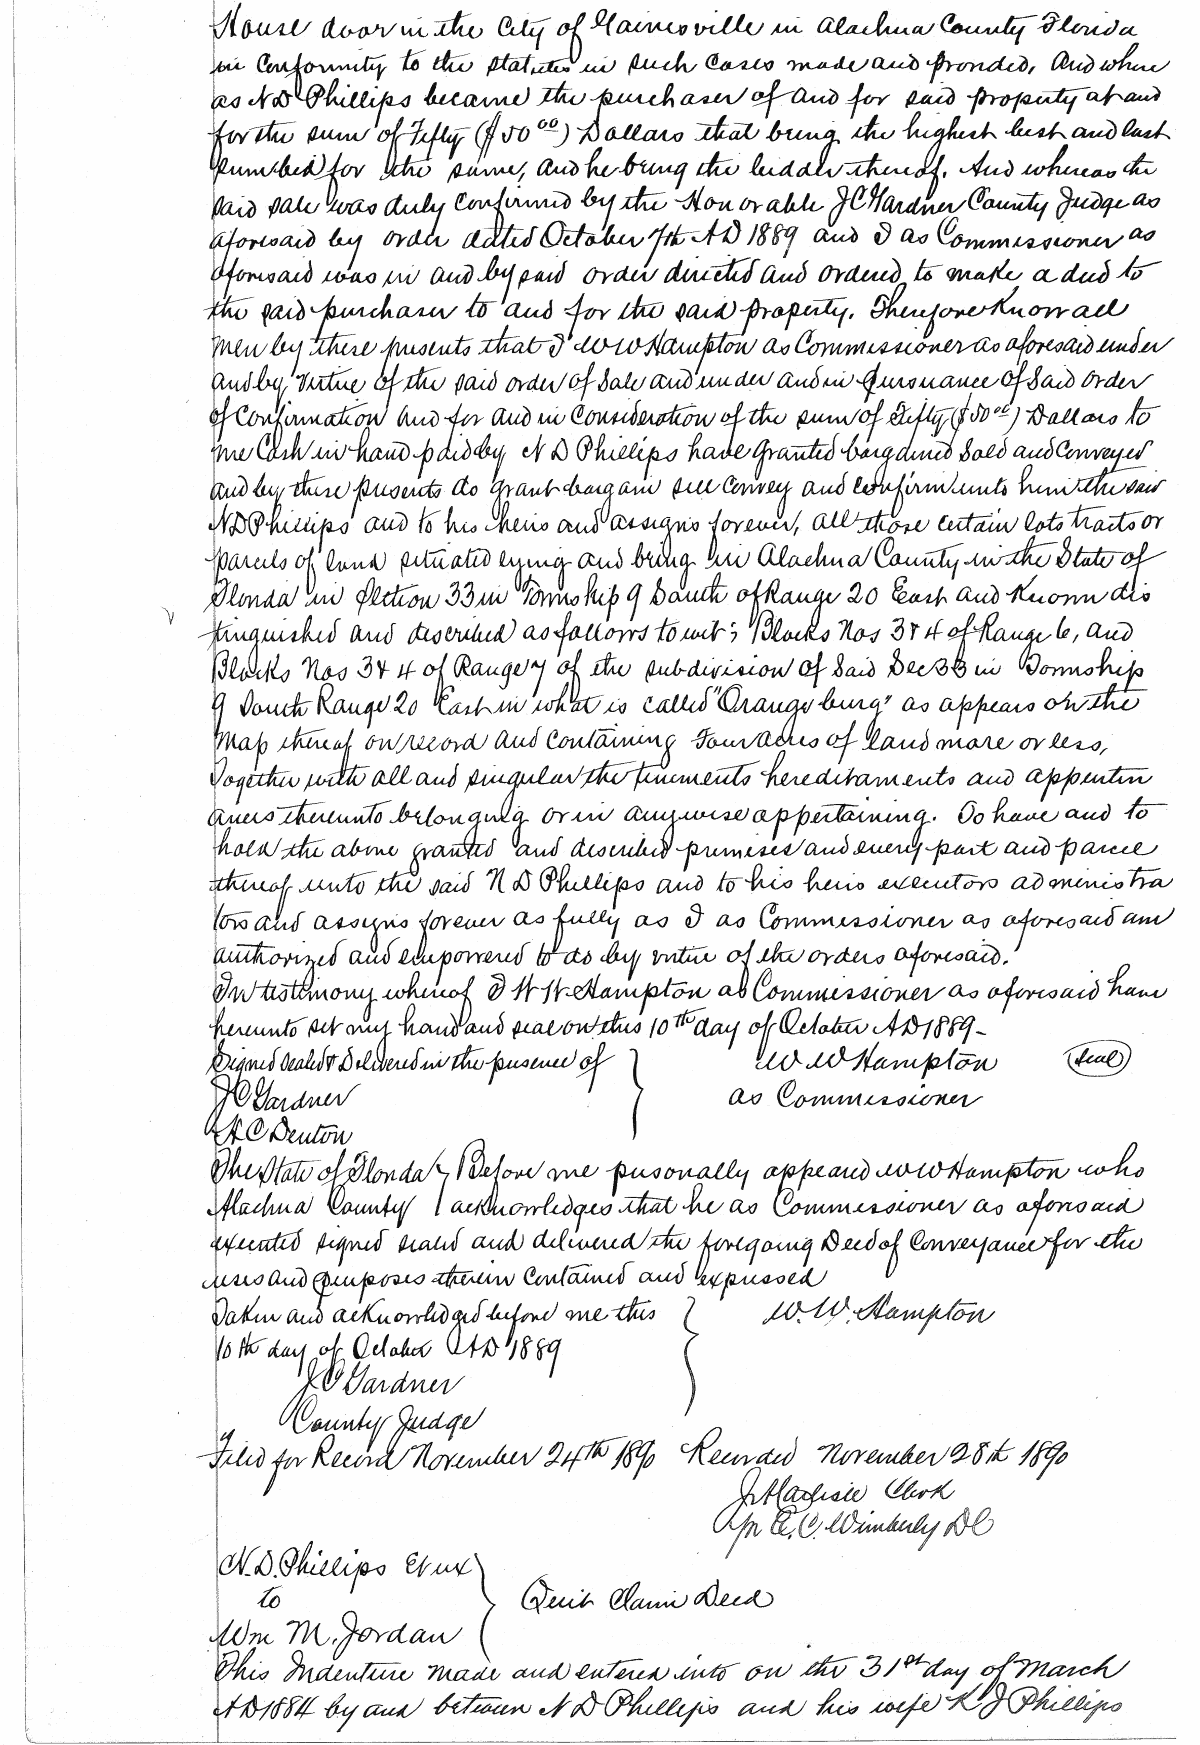 House door in the City of Gainesville in Alachua County Florida
in Conformity to the Statutes in such Cases made and provided, And where
as N D Phillips became the purchaser of and for said property at and
for the sum of Fifty ($50⁰⁰) Dollars that being the highest best and last
sum bid for the same, and he being the bidder thereof. And whereas the
said sale was duly Confirmed by the Honorable J C Gardner County Judge as
aforesaid by order dated October 7th A D 1889 and I as Commissioner as
aforesaid was in and by said order directed and ordered to make a deed to
the said purchaser to and for the said property. Therefore Know all
men by these presents that I W W Hampton as Commissioner as aforesaid under
and by virtue of the said order of Sale and under and in pursuance of Said order
of Confirmation and for and in Consideration of the sum of Fifty ($50⁰⁰) Dollars to
me Cash in hand paid by N D Phillips have Granted bargained Sold and Conveyed
and by these presents do grant bargain sell Convey and Confirm unto him the said
N D Phillips and to his heirs and assigns forever, all those certain lots tracts or
parcels of land situated lying and being in Alachua County in the State of
Florida in Section 33 in Township 9 South of Range 20 East and Known dis
tinguished and described as follows to wit; Blocks Nos 3 & 4 of Range 6, and
Blocks Nos 3 & 4 of Range 7 of the subdivision of Said Sec 33 in Township
9 South Range 20 East in what is called "Orangeburg" as appears on the
Map thereof on record and Containing Four acres of land more or less,
Together with all and singular the tenements hereditaments and appurten
ances thereunto belonging or in anywise appertaining. To have and to
hold the above granted and described premises and every part and parcel
thereof unto the said N D Phillips and to his heirs executors administra
tors and assigns forever as fully as I as Commissioner as aforesaid am
authorized and empowered to do by virtue of the orders aforesaid.
In testimony whereof I W W. Hampton as Commissioner as aforesaid have
hereunto set my hand and seal on this 10th day of October A D 1889 -
Signed Sealed & Delivered in the presence of W. W Hampton (Seal)
J C Gardner as Commissioner
H C Denton
The State of Florida Before me personally appeared W W Hampton who
Alachua County acknowledges that he as Commissioner as aforesaid
executed signed sealed and delivered the foregoing Deed of Conveyance for the
uses and purposes therein Contained and expressed
Taken and acknowledged before me this W. W. Hampton
10th day of October A D 1889
J C Gardner
County Judge
Filed for Record November 24th 1890 Recorded November 28th 1890
J A Carlisle Clerk
Per C. Wimberly D C
N. D. Phillips Et ux
to Quit Claim Deed
Wm M. Jordan
This Indenture made and entered into on the 31st day of March
A D 1884 by and between N D Phillips and his wife K J Phillips